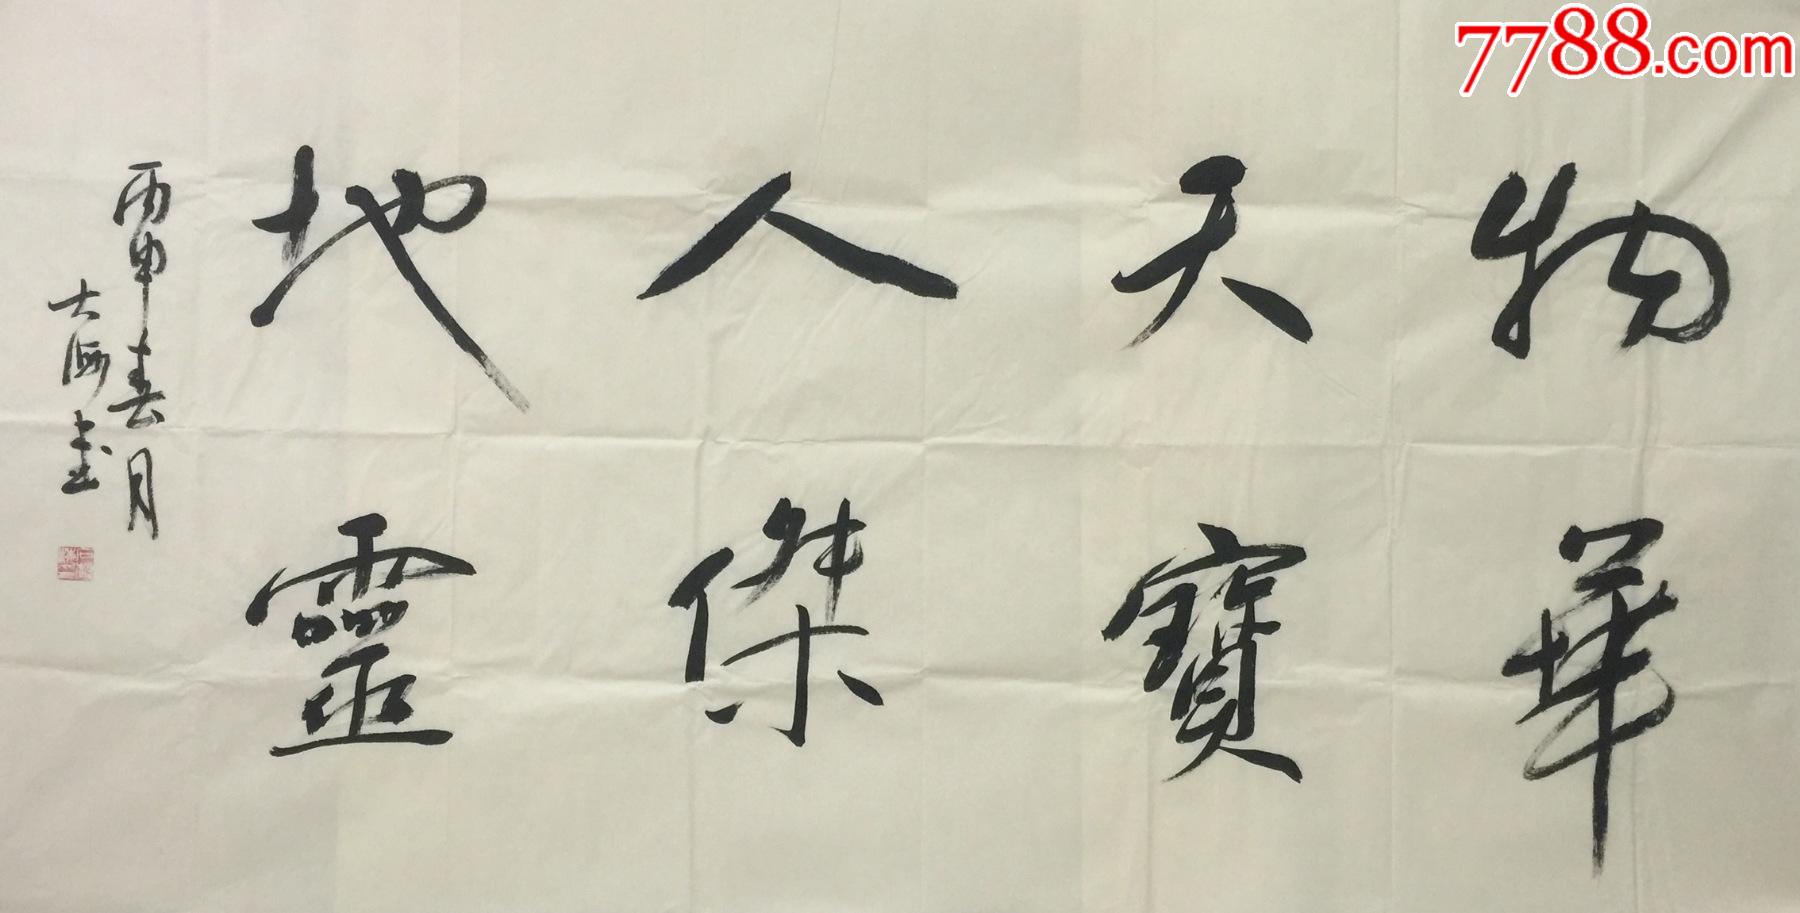 物華
天寶
人傑
地靈
丙申春月
大海書
7788.com